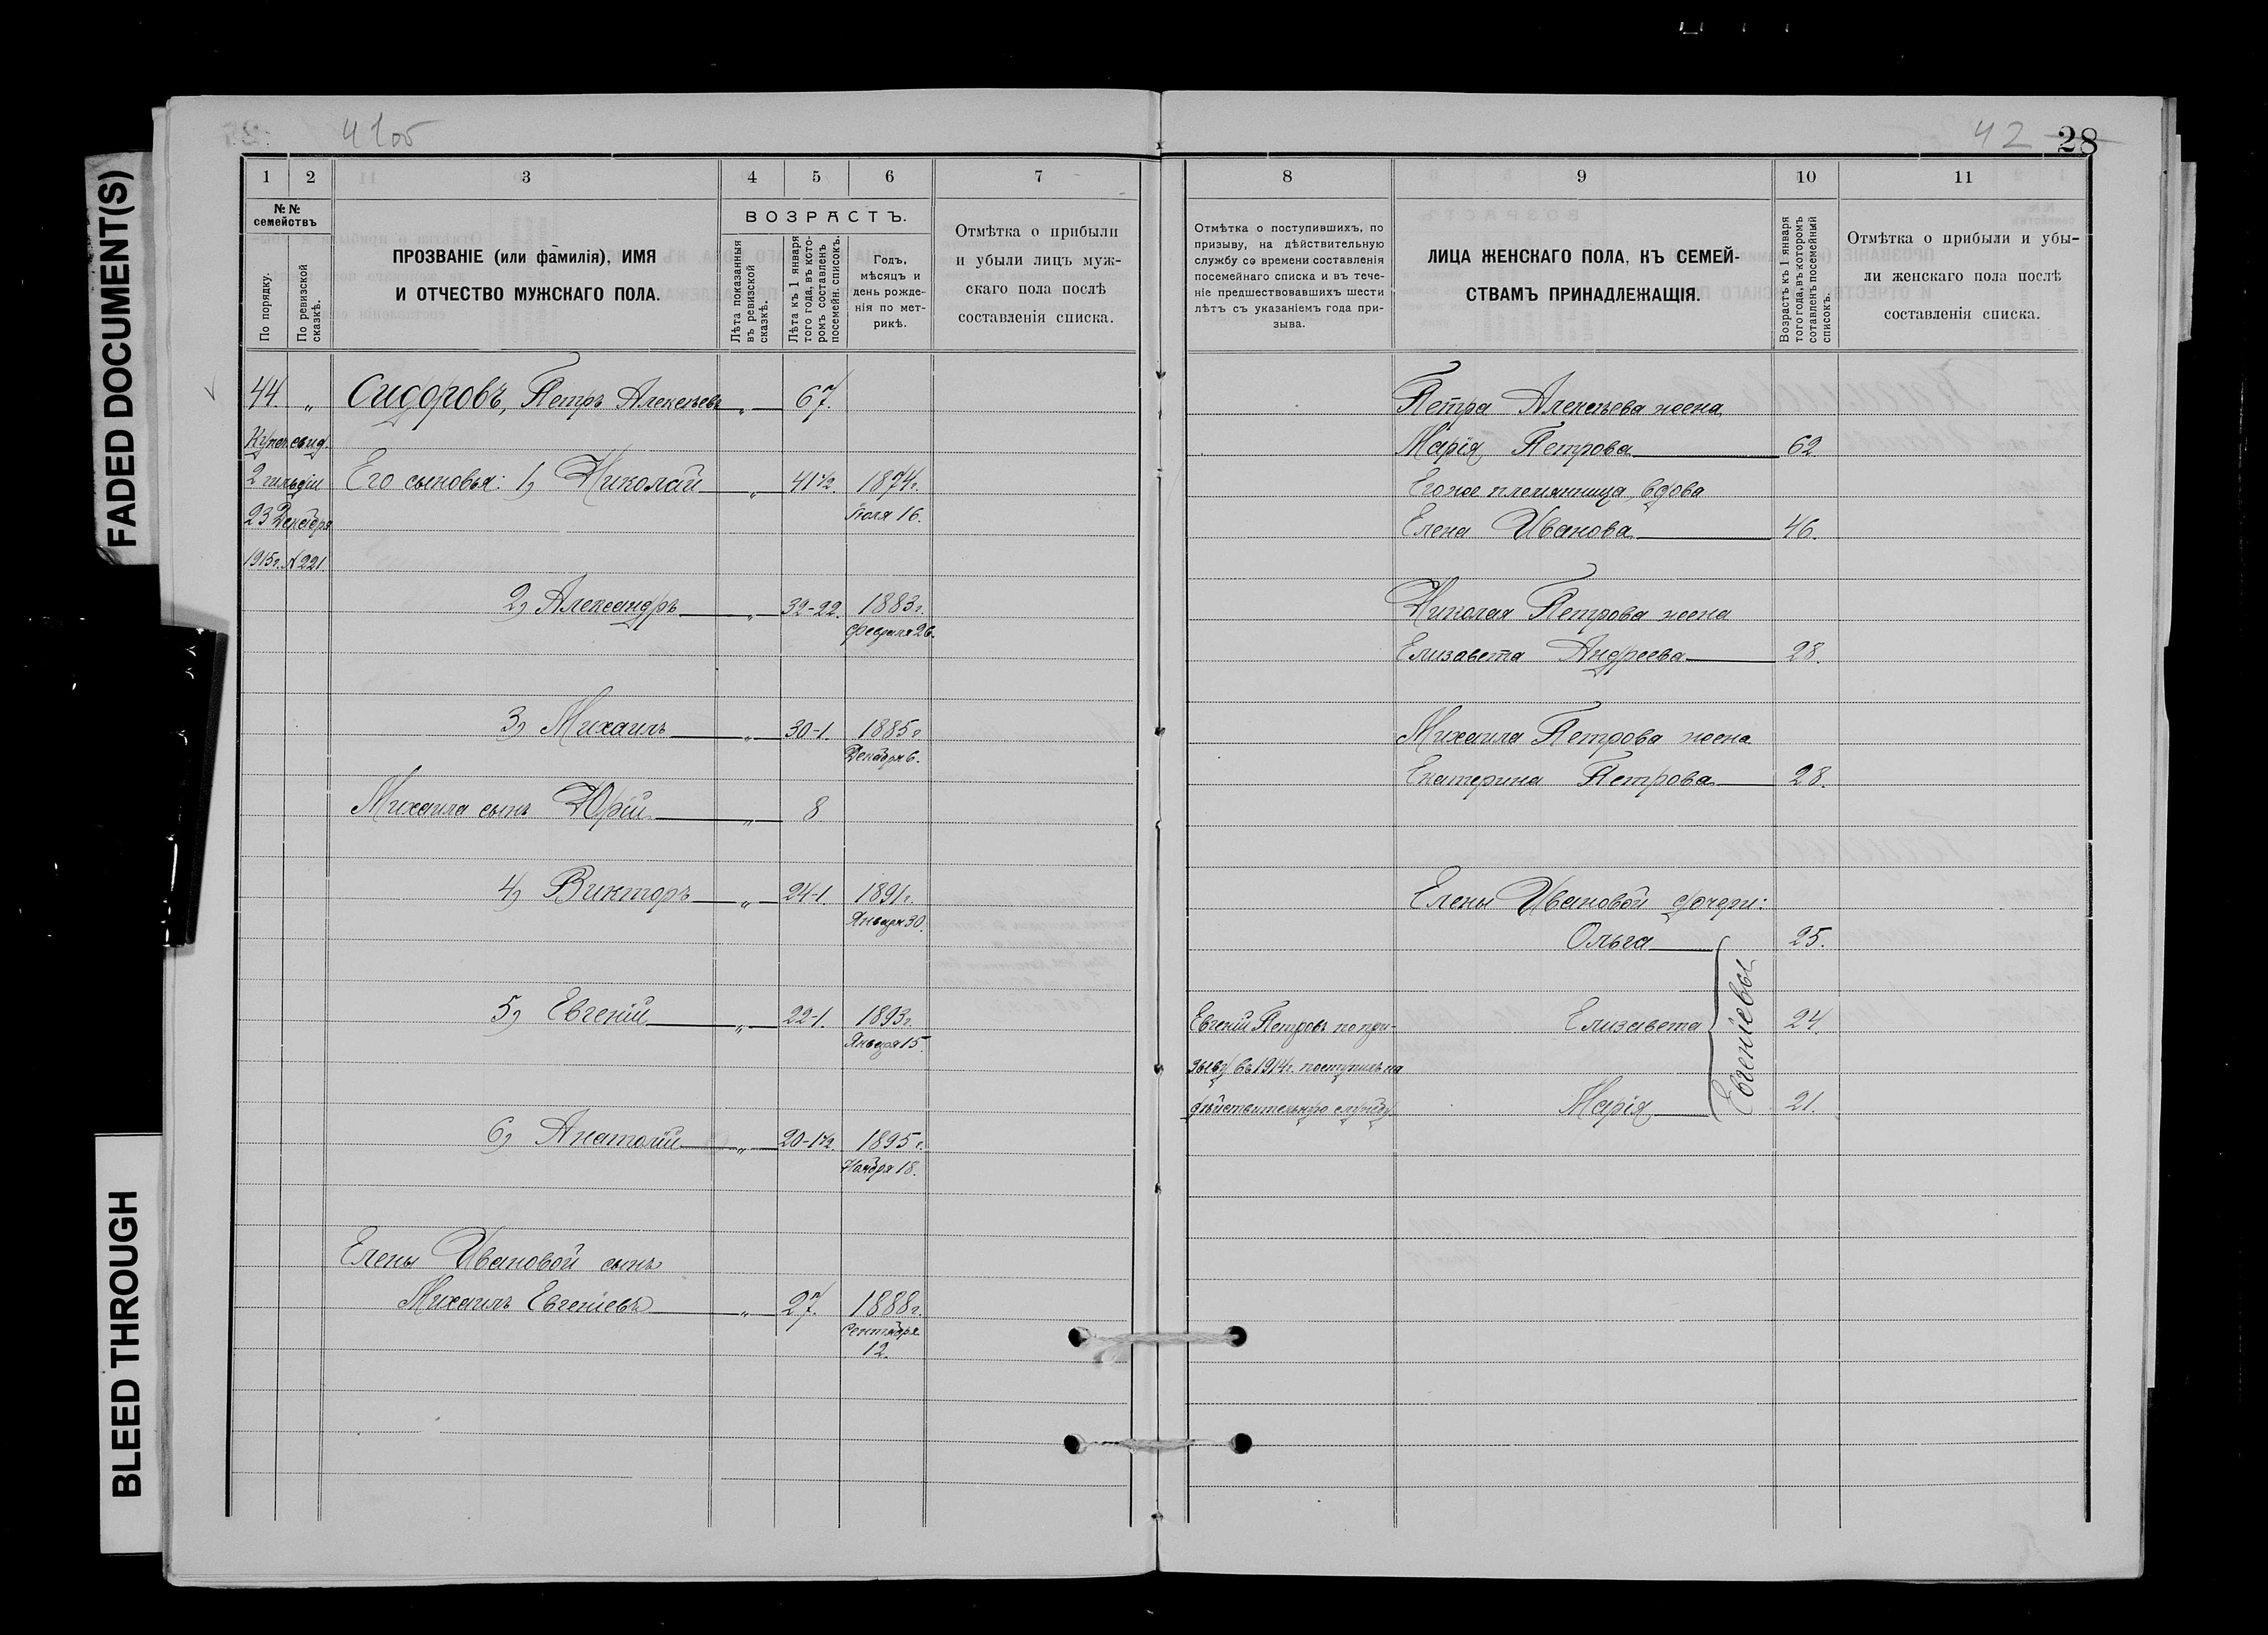 FADED DOCUMENT(S)
BLEED THROUGH
41об
1 2 3 4 5 6 7
№№ семействъ
По порядку.
По ревизской сказкѣ.
ПРОЗВАНІЕ (или фамилія), ИМЯ
И ОТЧЕСТВО МУЖСКАГО ПОЛА.
ВОЗРАСТЪ.
Лѣта показанныя
въ ревизской
сказкѣ.
Лѣта къ 1 января
того года, въ кото-
ромъ составленъ
посемейн. списокъ.
Годъ,
мѣсяцъ и
день рожде-
нія по мет-
рикѣ.
Отмѣтка о прибыли
и убыли лицъ муж-
скаго пола послѣ
составленія списка.
44. „ Сидоровъ, Петръ Алексѣевъ „ 67.
Купеч. свид.
2 гильдіи Его сыновья: 1, Николай „ 41½. 1874г.
23 Декабря Іюля 16.
1915г. №221.
2, Александръ „ 32-22. 1883г.
Февраля 26.
3, Михаилъ „ 30-1. 1885г
Декабря 6.
Михаила сынъ Юрій „ 8
4, Викторъ „ 24-1. 1891г.
Января 30.
5, Евгеній „ 22-1. 1893г.
Января 15.
6, Анатолій „ 20-1½. 1895г.
Ноября 18.
Елены Ивановой сынъ
Михаилъ Евгеніевъ „ 27. 1888г.
Сентября
12.
42 28
8 9 10 11
Отмѣтка о поступившихъ, по
призыву, на дѣйствительную
службу со времени составленія
посемейнаго списка и въ тече-
ніе предшествовавшихъ шести
лѣтъ съ указаніемъ года при-
зыва.
ЛИЦА ЖЕНСКАГО ПОЛА, КЪ СЕМЕЙ-
СТВАМЪ ПРИНАДЛЕЖАЩІЯ.
Возрастъ къ 1 января
того года, въ которомъ
сотавленъ посемейный
списокъ.
Отмѣтка о прибыли и убы-
ли женскаго пола послѣ
составленія списка.
Петра Алексѣева жена
Марія Петрова 62
Его же племянница, вдова
Елена Иванова 46.
Николая Петрова жена
Елизавета Андреева 28.
Михаила Петрова жена
Екатерина Петрова 28.
Елены Ивановой дочери:
Ольга 25.
Евгеній Петровъ по при- Елизавета Евгеніевы 24.
зыву въ 1914г. поступилъ на
дѣйствительную службу Марія 21.